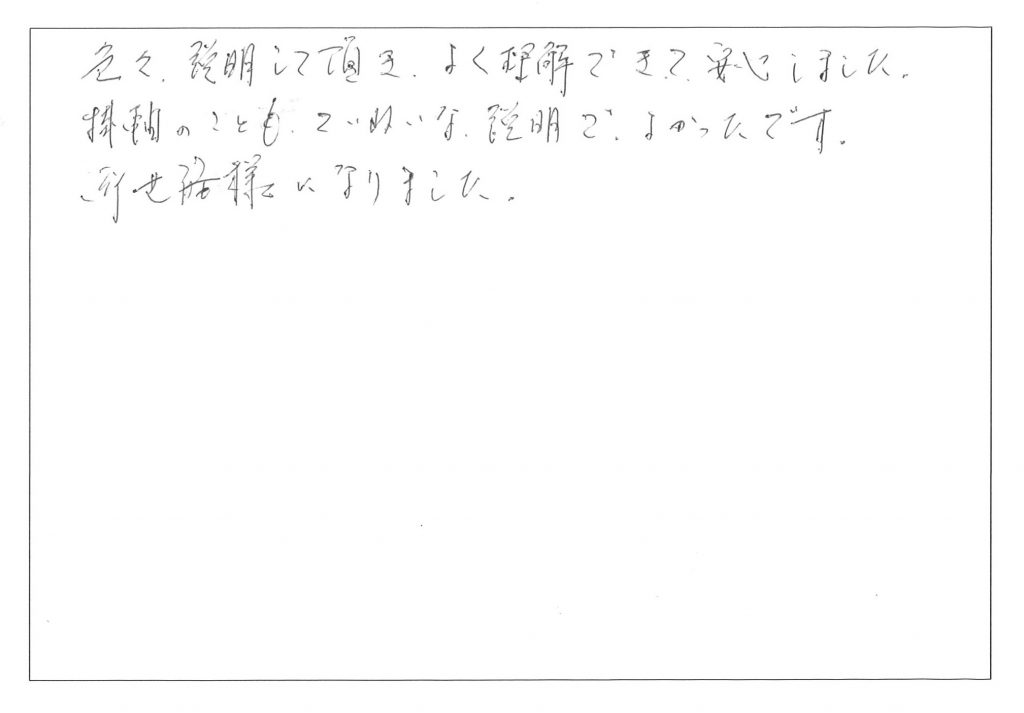 色々、説明して頂き、よく理解できて、安心しました。
掛軸のことも、ていねいな、説明で、よかったです。
世話様になりました。